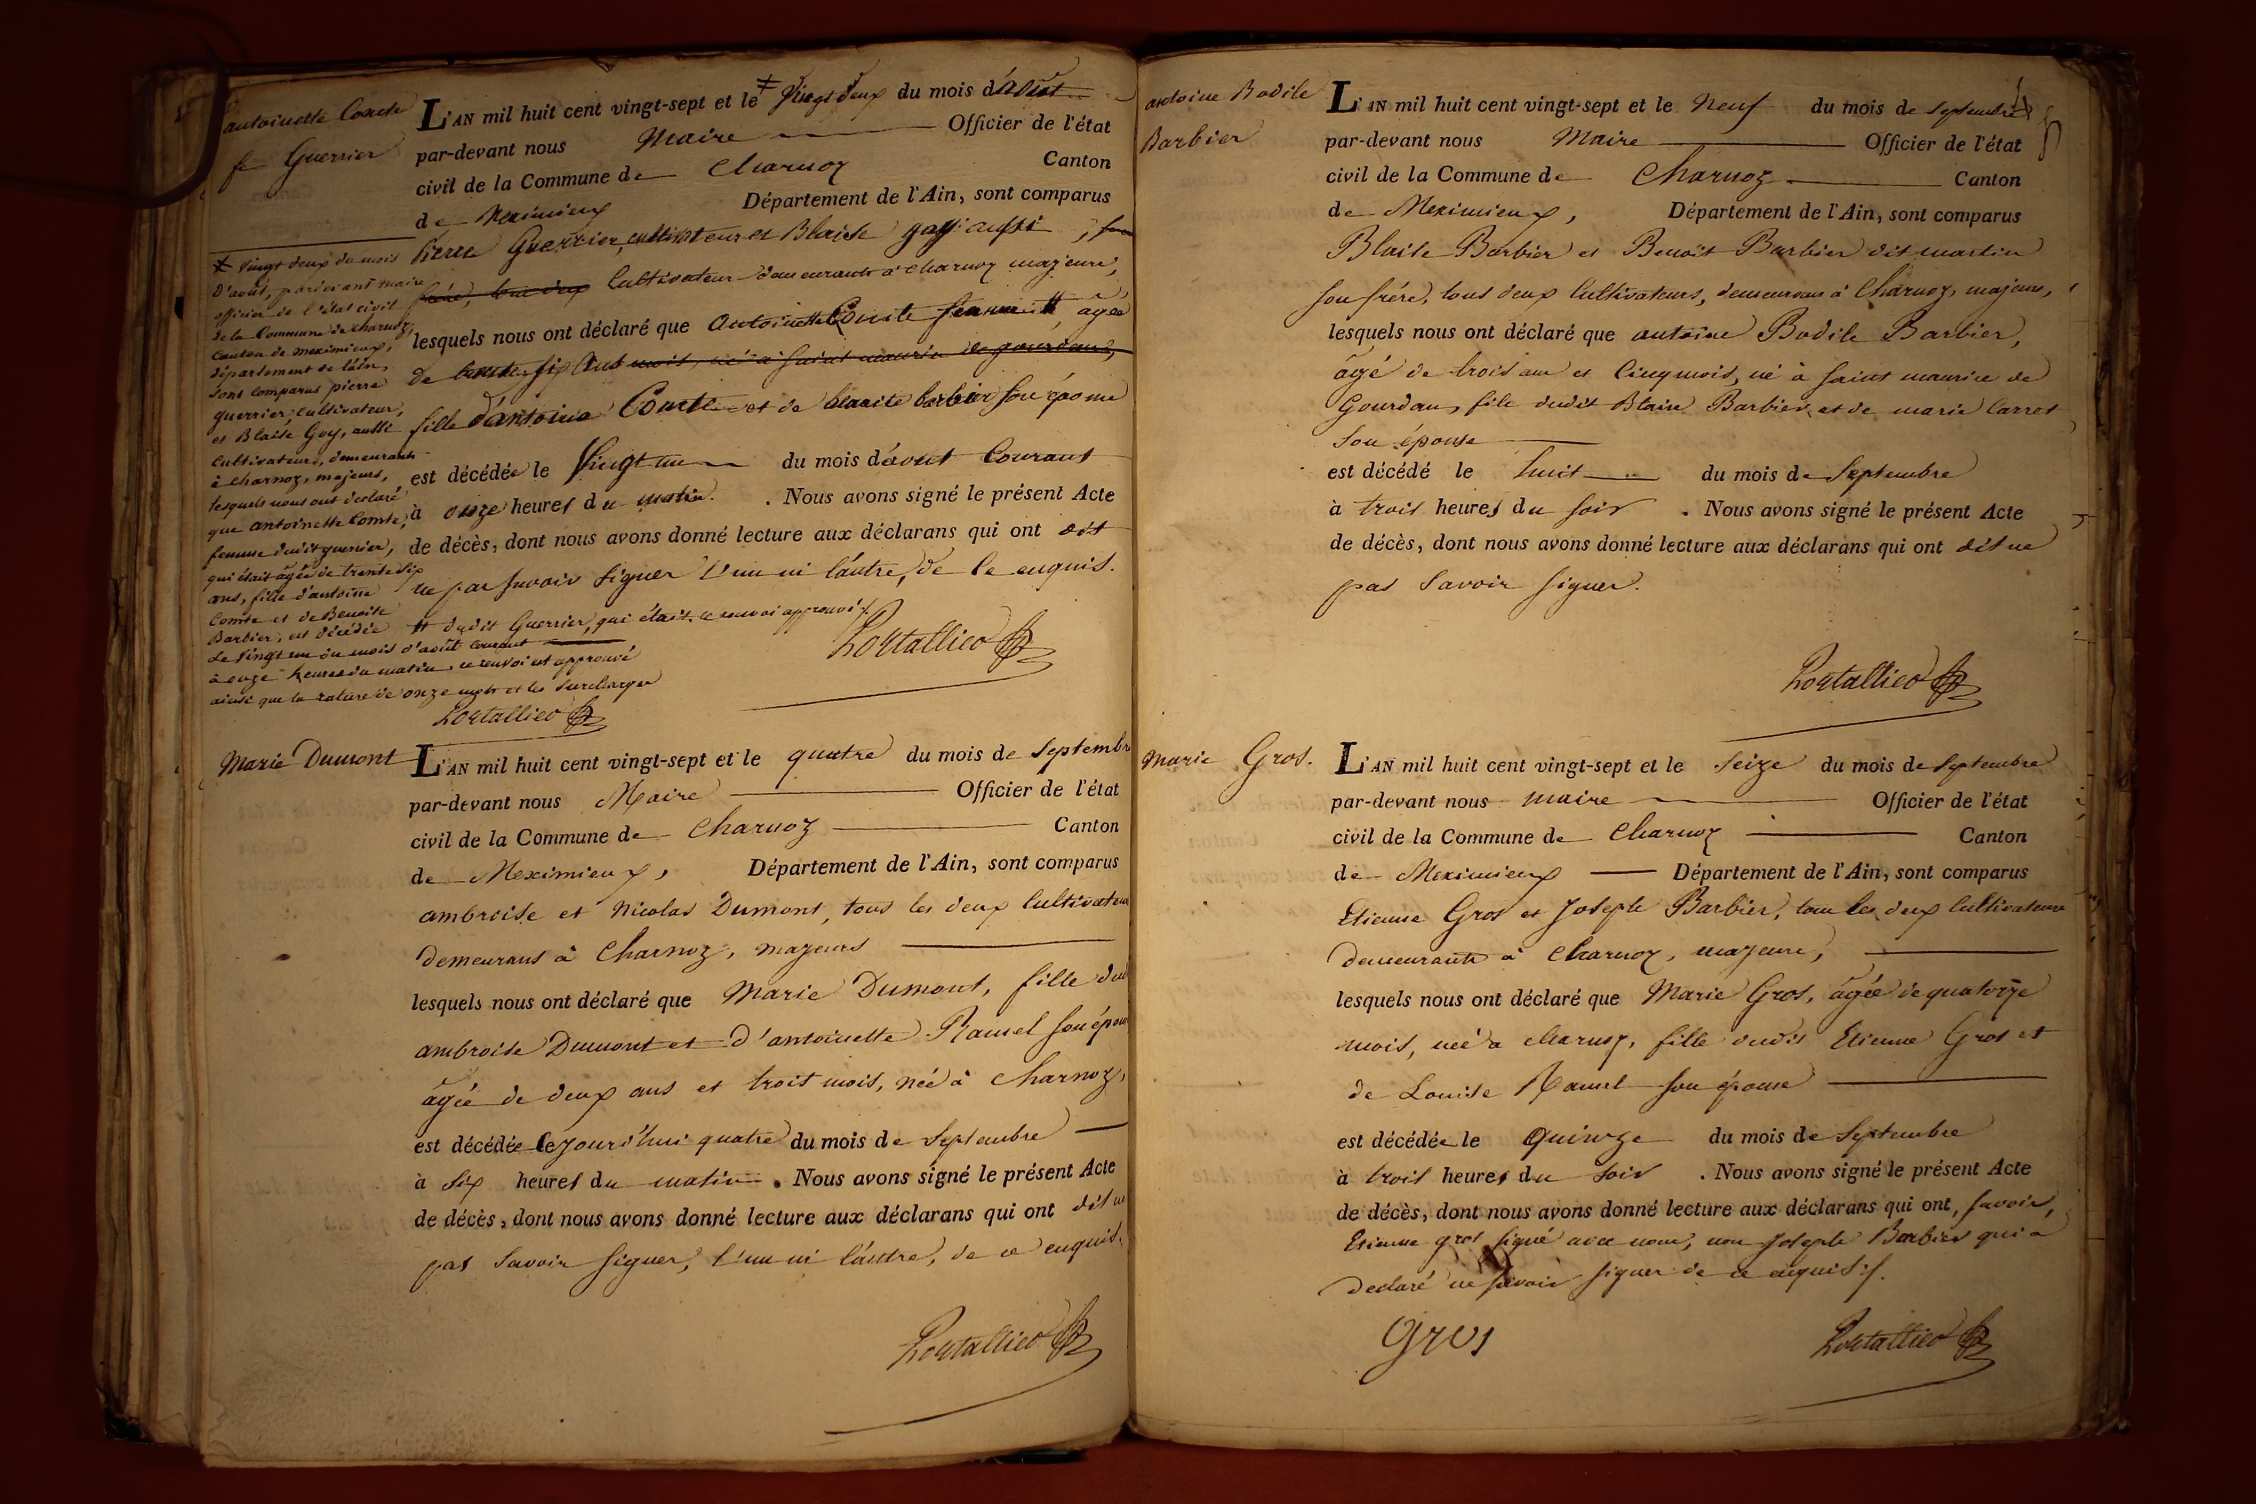 antoinette Comte
fe Guerrier
L'AN mil huit cent vingt-sept et le vingt deux du mois d'aout
par-devant nous Maire Officier de l'état
civil de la Commune de Charnoz Canton
de Meximieux Département de l'Ain, sont comparus
Pierre Guerrier, cultivateur et Blaise goy aussi
cultivateur demeurants à Charnoz majeurs,
lesquels nous ont déclaré que antoinette Comte femme # âgée
de trente six ans mois, née à saint maurice de gourdans,
fille d'antoine Comte et de benoite barbier son épouse
est décédée le Vingt un du mois d'aout Courant
à onze heures du matin. Nous avons signé le présent Acte
de décès, dont nous avons donné lecture aux déclarans qui ont dit
ne pas savoir signer l'un ni l'autre, de ce enquis.
# dudit Guerrier, qui était, ce renvoi approuvé
Portallier
≠ vingt deux du mois
D'août, pardevant maire
officier de l'état civil
de la Commune de charnoz,
Canton de meximieux,
département de l'ain,
sont comparus pierre
guerrier, cultivateur,
et Blaise Goy, aussi
cultivateur, demeurants
à charnoz, majeurs,
lesquels nous ont declaré
que antoinette Comte,
femme dudit guerrier,
qui était âgée de trente six
ans, fille d'antoine
Comte et de Benoite
Barbier, est décédée
Le vingt un du mois d'août courant
à onze heures du matin, ce renvoi est approuvé
ainsi que la rature de onze mots et les surcharges
Portallier
Marie Dumont
L'AN mil huit cent vingt-sept et le quatre du mois de Septembre
par-devant nous Maire Officier de l'état
civil de la Commune de Charnoz Canton
de Meximieux, Département de l'Ain, sont comparus
ambroise et Nicolas Dumont, tous les deux Cultivateurs
demeurans à Charnoz, majeurs
lesquels nous ont déclaré que Marie Dumont, fille dud
ambroise Dumont et d'antoinette Ramel son épouse
âgée de deux ans et trois mois, née à Charnoz,
est décédée Cejourd'hui quatre du mois de Septembre
à six heures du matin. Nous avons signé le présent Acte
de décès, dont nous avons donné lecture aux déclarans qui ont dit ne
pas Savoir Signer, l'un ni l'autre, de ce enquis.
Portallier
antoine Bodile
Barbier
L'AN mil huit cent vingt-sept et le Neuf du mois de Septembre
par-devant nous Maire Officier de l'état
civil de la Commune de Charnoz Canton
de Meximieux, Département de l'Ain, sont comparus
Blaise Barbier et Benoît Barbier dit martin
son frère, tous deux Cultivateurs, demeurans à Charnoz, majeurs,
lesquels nous ont déclaré que antoine Bodile Barbier,
âgé de trois ans et Cinq mois, né à saint maurice de
Gourdans, fils dudit Blaise Barbier et de marie Carret
Son épouse
est décédé le huit du mois de Septembre
à trois heures du soir. Nous avons signé le présent Acte
de décès, dont nous avons donné lecture aux déclarans qui ont dit ne
pas Savoir Signer.
Portallier
Marie Gros.
L'AN mil huit cent vingt-sept et le Seize du mois de Septembre
par-devant nous maire Officier de l'état
civil de la Commune de Charnoz Canton
de Meximieux Département de l'Ain, sont comparus
Etienne Gros et Joseph Barbier, tous les deux Cultivateurs
demeurants à Charnoz, majeurs,
lesquels nous ont déclaré que Marie Gros, âgée de quatorze
mois, née à Charnoz, fille dudit Etienne Gros et
de Louise Ramel son épouse
est décédée le quinze du mois de Septembre
à trois heures du soir. Nous avons signé le présent Acte
de décès, dont nous avons donné lecture aux déclarans qui ont, savoir,
Etienne gros signé avec nous, non Joseph Barbier qui a
declaré ne savoir signer de ce enquis.
Gros
Portallier